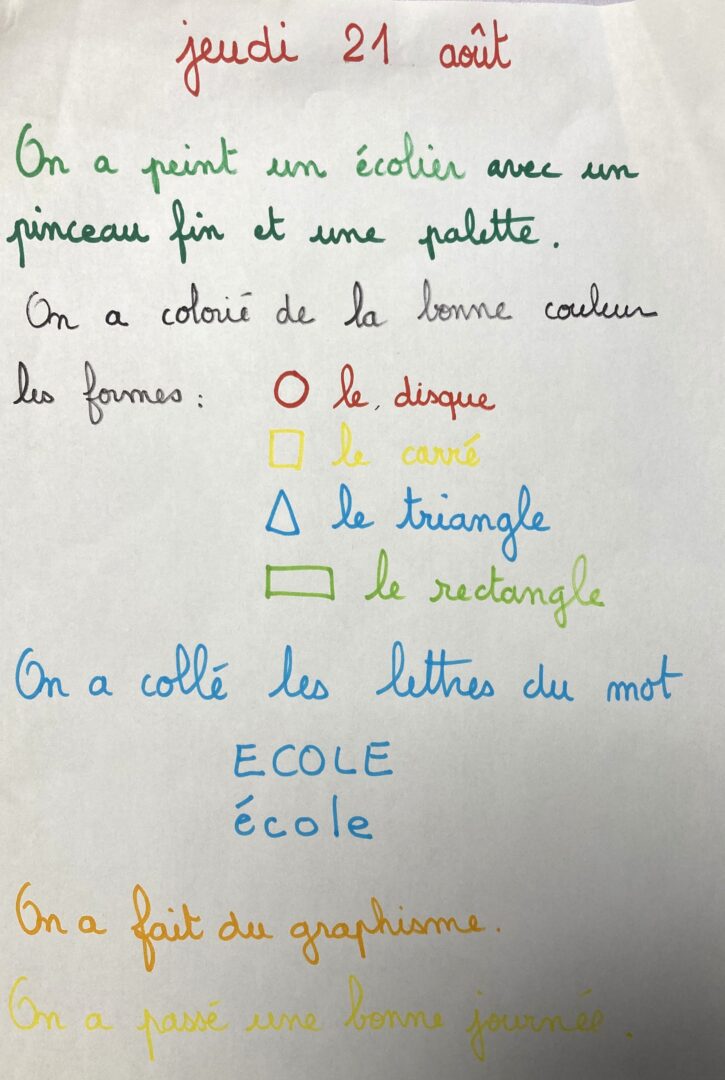 jeudi 21 août
On a peint un écolier avec un
pinceau fin et une palette.
On a colorié de la bonne couleur
les formes : le disque
le carré
le triangle
le rectangle
On a collé les lettres du mot
ECOLE
école
On a fait du graphisme.
On a passé une bonne journée.